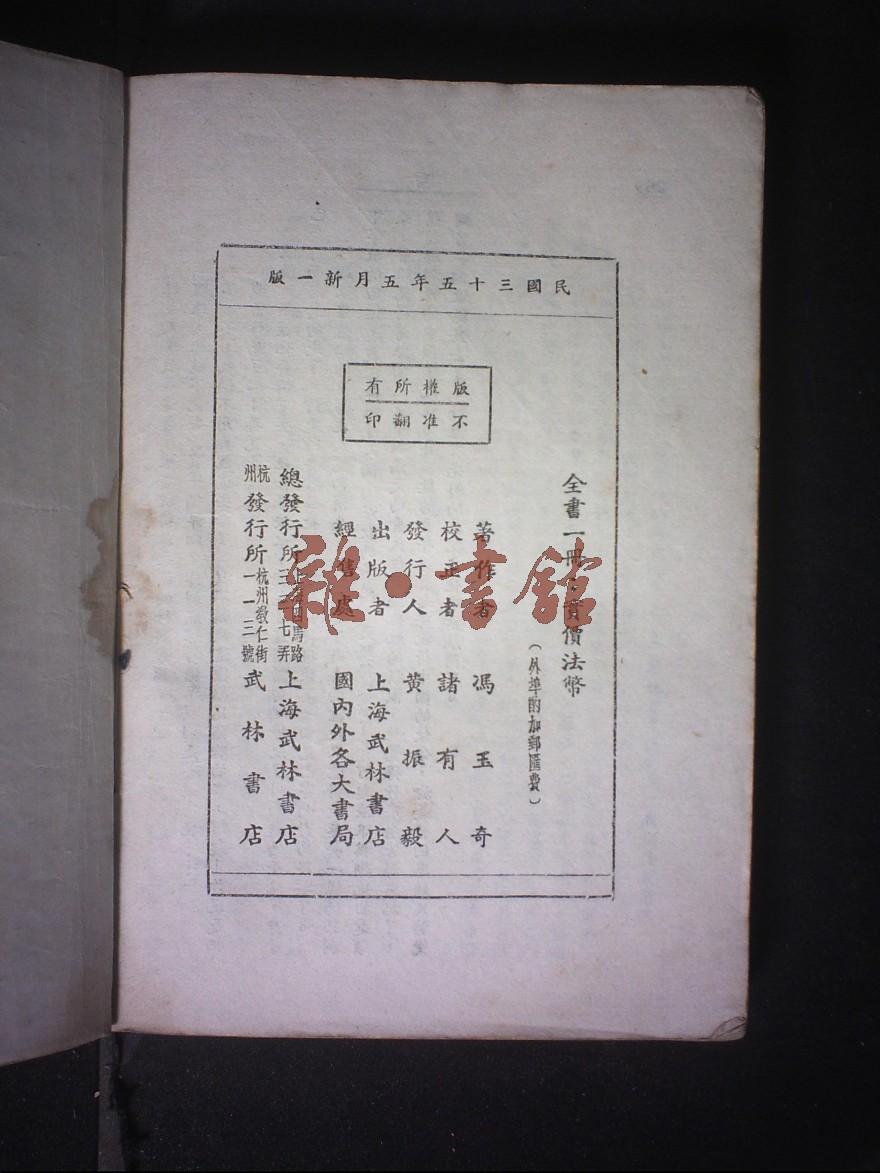 民國三十五年五月新一版
版權所有
不准翻印
全書一冊 實價法幣
(外埠酌加郵匯費)
著作者 馮玉奇
校正者 諸有人
發行人 黄振毅
出版者 上海武林書店
經售處 國內外各大書局
總發行所 上海四馬路三三七弄 上海武林書店
杭州發行所 杭州敎仁街一一三號 武林書店
雜·書館